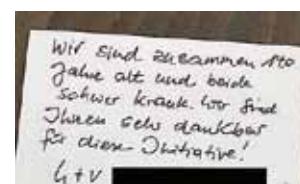 Wir sind zusammen 170
Jahre alt und beide
schwer krank. Wir sind
Ihnen sehr dankbar
für diese Initiative!
G + V